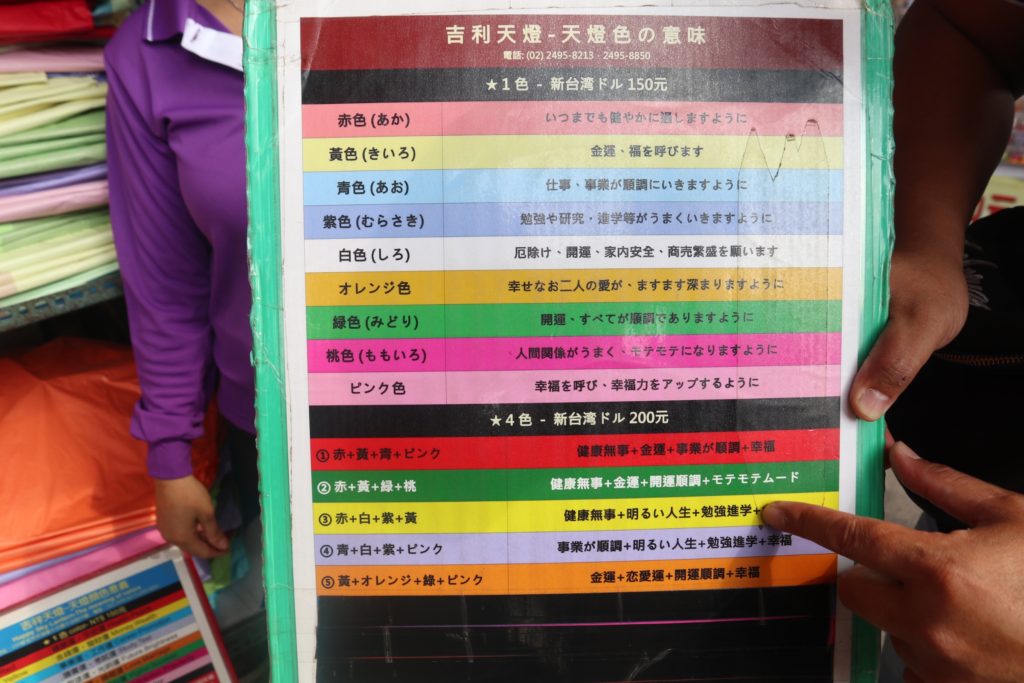 吉利天燈-天燈色の意味
電話: (02) 2495-8213 · 2495-8850
★1色 - 新台湾ドル 150元
赤色 (あか) いつまでも健やかに過しますように
黃色 (きいろ) 金運、福を呼びます
青色 (あお) 仕事、事業が順調にいきますように
紫色 (むらさき) 勉強や研究・進学等がうまくいきますように
白色 (しろ) 厄除け、開運、家内安全、商売繁盛を願います
オレンジ色 幸せなお二人の愛が、ますます深まりますように
緑色 (みどり) 開運、すべてが順調でありますように
桃色 (ももいろ) 人間関係がうまく、モテモテになりますように
ピンク色 幸福を呼び、幸福力をアップするように
★4色 - 新台湾ドル 200元
①赤+黃+青+ピンク 健康無事+金運+事業が順調+幸福
②赤+黃+緑+桃 健康無事+金運+開運順調+モテモテムード
③赤+白+紫+黃 健康無事+明るい人生+勉強進学+
④青+白+紫+ピンク 事業が順調+明るい人生+勉強進学+幸福
⑤黃+オレンジ+緑+ピンク 金運+恋愛運+開運順調+幸福
吉祥天燈-天燈顏色意義